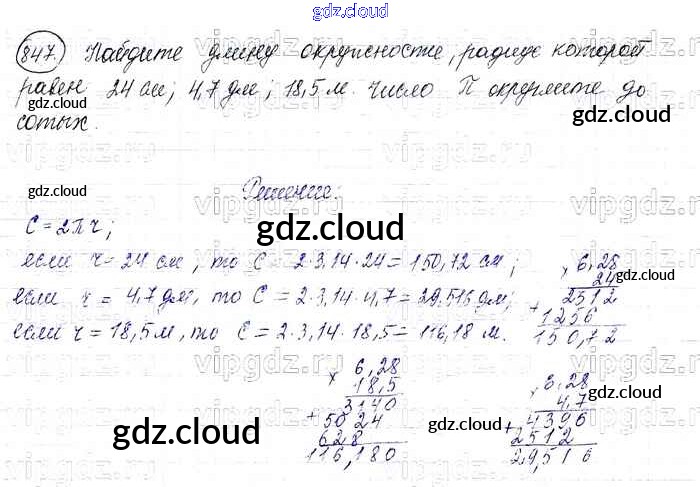 gdz.cloud
847. Найдите длину окружности, радиус которой
равен 24 см; 4,7 дм; 18,5 м. число П округлите до
сотых.
gdz.cloud
gdz.cloud
gdz.cloud
Решение:
C = 2πr;
gdz.cloud
если r = 24 см, то C = 2·3,14·24 = 150,72 см;
если r = 4,7 дм, то C = 2·3,14·4,7 = 29,516 дм;
если r = 18,5 м, то C = 2·3,14·18,5 = 116,18 м.
× 6,28
24
gdz.cloud
+ 2512
1256
150,72
gdz.cloud
× 6,28
18,5
3140
+ 5024
628
116,180
× 6,28
4,7
+ 4396
2512
29,516
gdz.cloud
gdz.cloud
gdz.cloud
gdz.cloud
vipgdz.ru